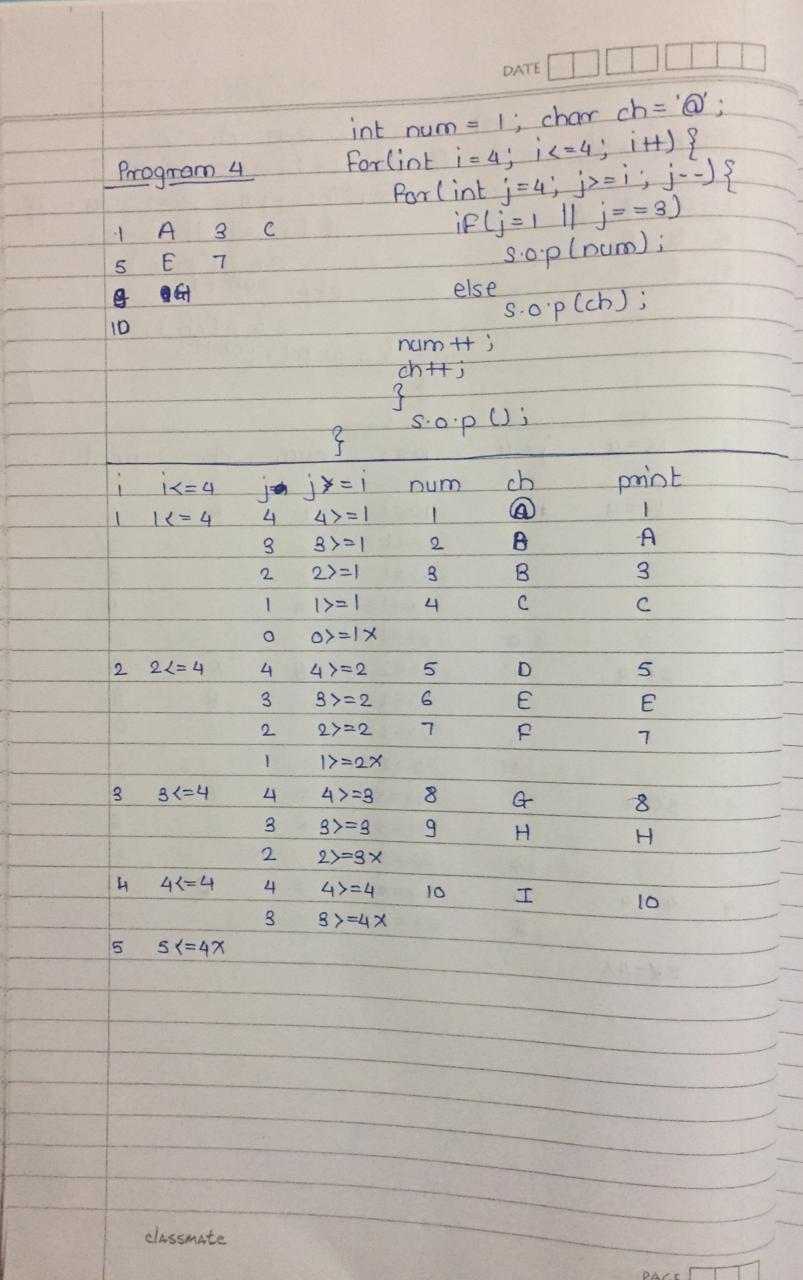 DATE
int num = 1; char ch = '@';
Program 4
For(int i=4; i<=4; i++) {
For(int j=4; j>=i; j--) {
1 A 3 C
if(j=1 || j==3)
s.o.p(num);
5 E 7
else
G
s.o.p(ch);
10
num++;
ch++;
}
s.o.p();
}
i i<=4 j j>=i num ch print
1 1<=4 4 4>=1 1 @ 1
3 3>=1 2 A
2 2>=1 3 B 3
1 1>=1 4 C C
0 0>=1x
2 2<=4 4 4>=2 5 D 5
3 3>=2 6 E E
2 2>=2 7 F 7
1 1>=2x
3 3<=4 4 4>=3 8 G 8
3 3>=3 9 H H
2 2>=3x
4 4<=4 4 4>=4 10 I 10
3 3>=4x
5 5<=4x
classmate
PAGE